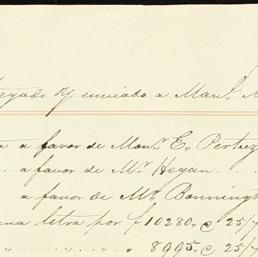 y enviado a Manl.
a favor de Monr. E. Pertuz
.. a favor de Mr. Hegan
a favor de Mr. Bonningt
una letra por f 10280. c 25/
" " " " " 8995. c 25/